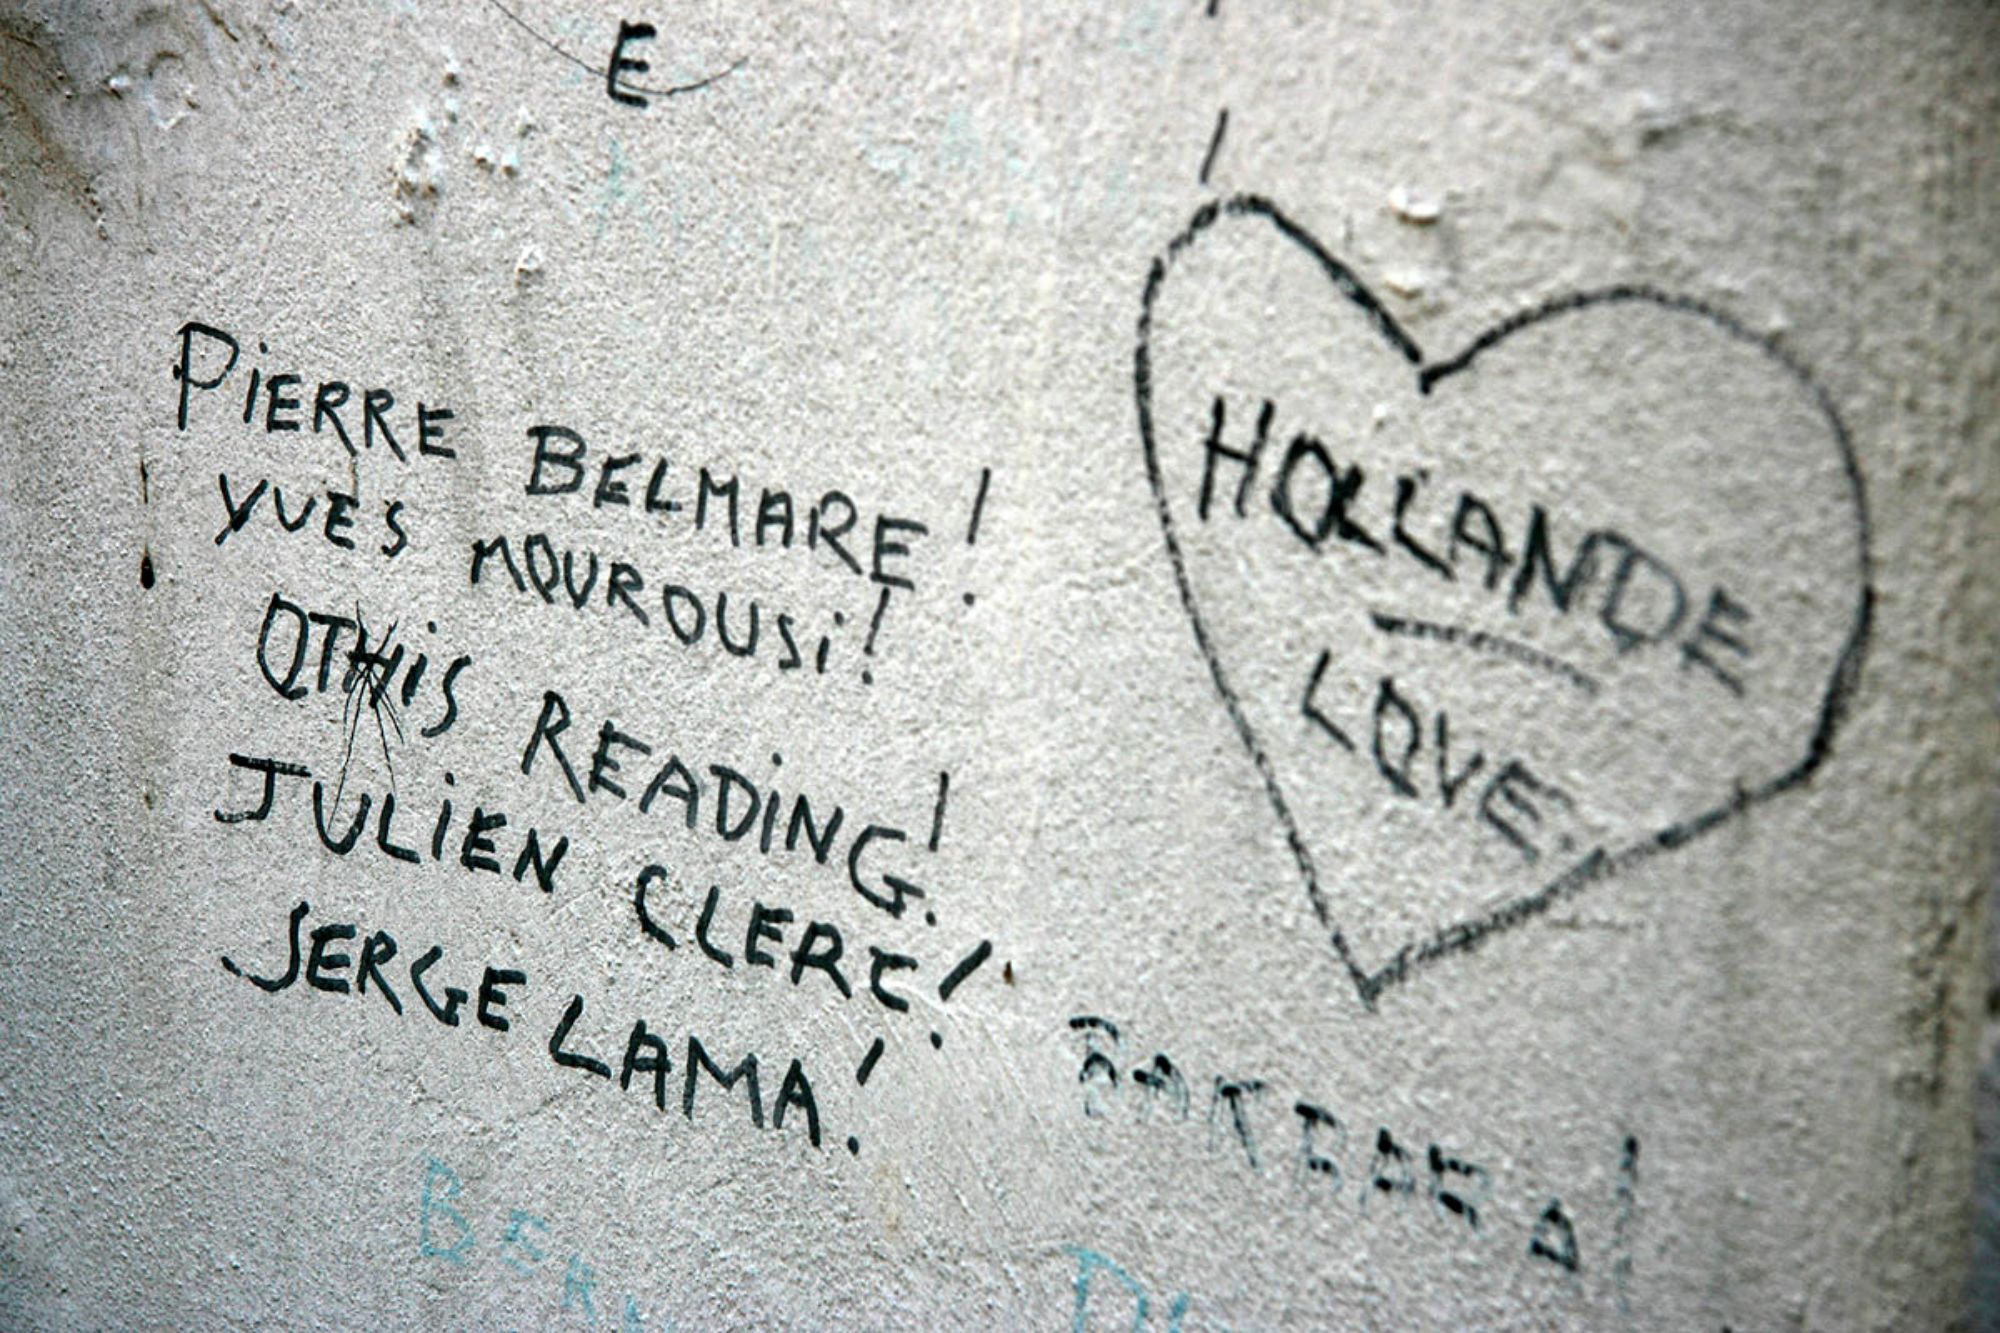 E
PiERRE BELMARE !
YVES MOUROUSi !
OTHiS READiNG !
JULiEN CLERE !
SERGE LAMA !
HOLLANDE
LOVE.